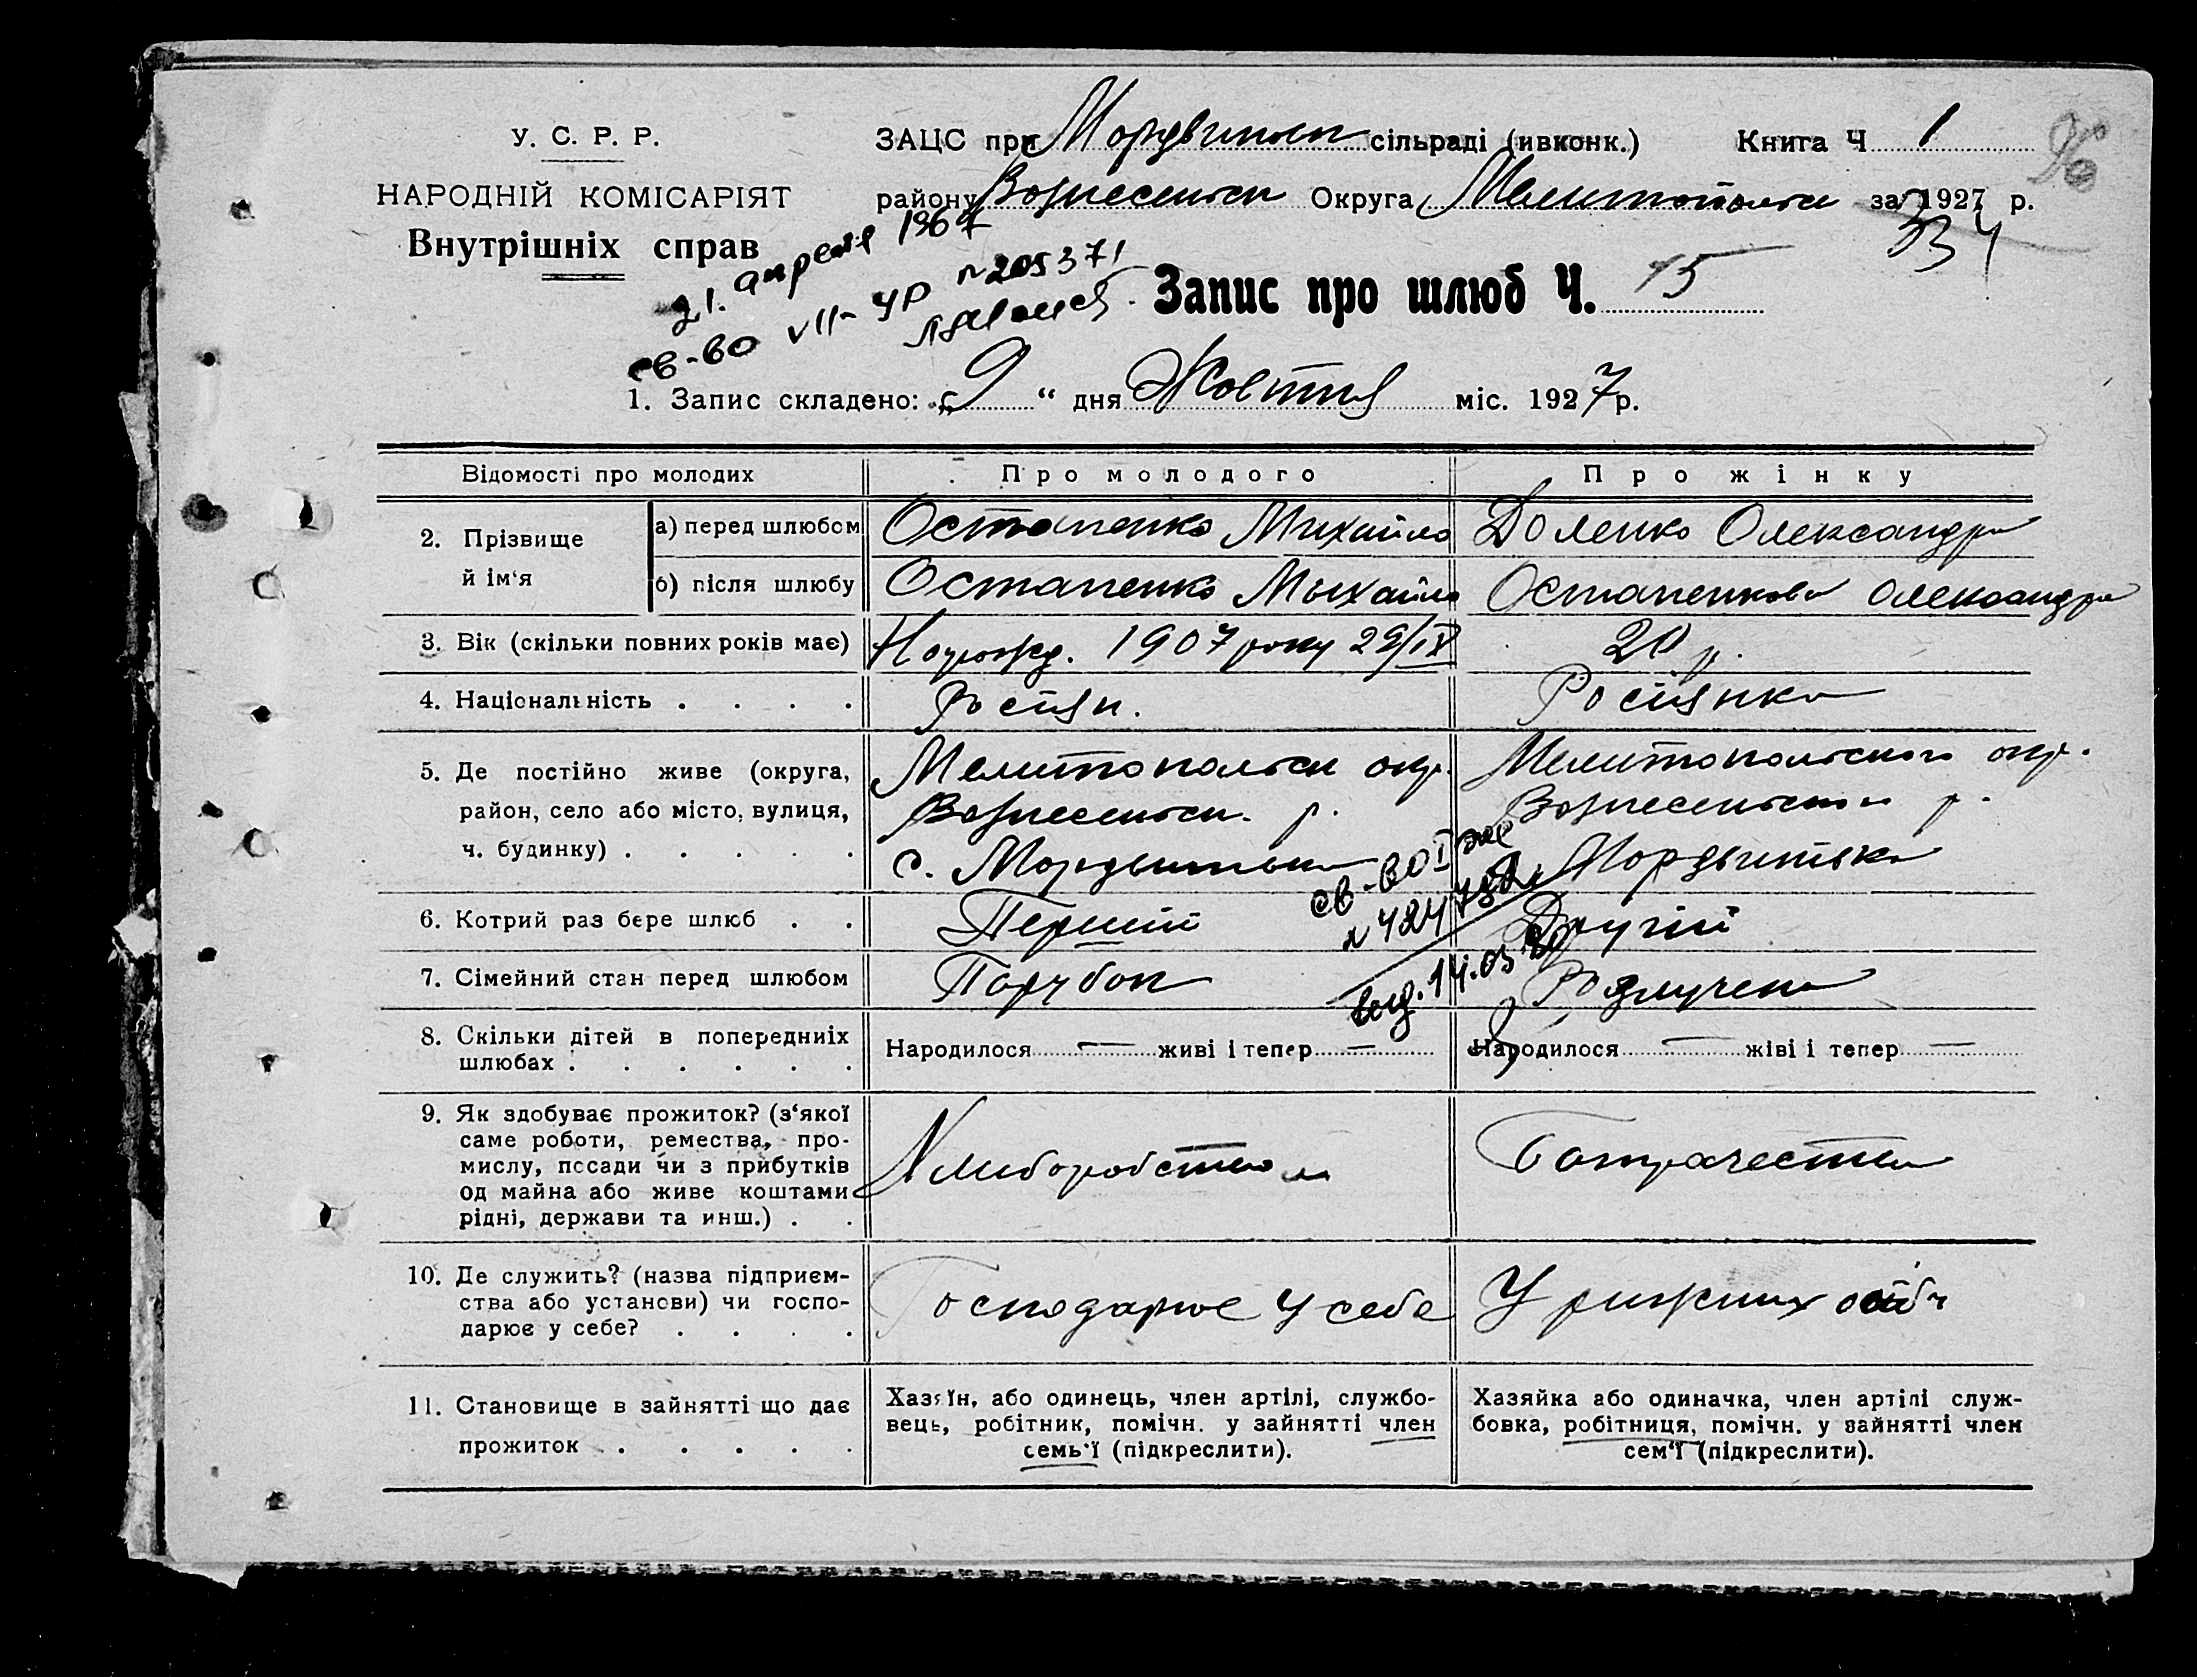 У. С. Р. Р.
НАРОДНІЙ КОМІСАРІЯТ
Внутрішніх справ
ЗАЦС при Мордвинськ сільраді (ивконк.) Книга Ч 1
району Вознесенськ Округа Мелитопольск за 1927 р.
334
21. апреля 1967
св-во VII-УР №205371
Запис про шлюб Ч. 15
1. Запис складено: „9“ дня Жовтня міс. 1927 р.
Відомості про молодих Про молодого Про жінку
2. Прізвище й ім‘я
а) перед шлюбом Остапенко Михайло Доленко Олександра
б) після шлюбу Остапенко Мыхайло Остапенкова Олександра
3. Вік (скільки повних років має) Нарожд. 1907 року 29/IX 20 р.
4. Національність . . . . Росіян. Росіянка
5. Де постійно живе (округа, Мелитопольськ окр. Мелитопольского окр.
район, село або місто, вулиця, Вознесенськ. р. р.
ч. будинку) . . . . . с. Мордвинська Мордвинівка
св-во І
6. Котрий раз бере шлюб . . Перший Другий
7. Сімейний стан перед шлюбом Парубок Розлучена
выд. 14.05
8. Скільки дітей в попередниіх Народилося — живі і тепер — Народилося — жіві і тепер —
шлюбах . . . . . .
9. Як здобуває прожиток? (з‘якої
саме роботи, ремества, про-
мислу, посади чи з прибутків
од майна або живе коштами
рідні, держави та инш.) . .
Хліборобством Батрачества
10. Де служить? (назва підприєм-
ства або установи) чи госпо-
дарює у себе? . . . .
Господарює у себе У рижних осіб
11. Становище в зайнятті що дає
прожиток . . . . .
Хазяїн, або одинець, член артілі, службо-
вець, робітник, помічн. у зайнятті член
семь‘ї (підкреслити).
Хазяйка або одиначка, член артілі служ-
бовка, робітниця, помічн. у зайнятті член
сем‘ї (підкреслити).